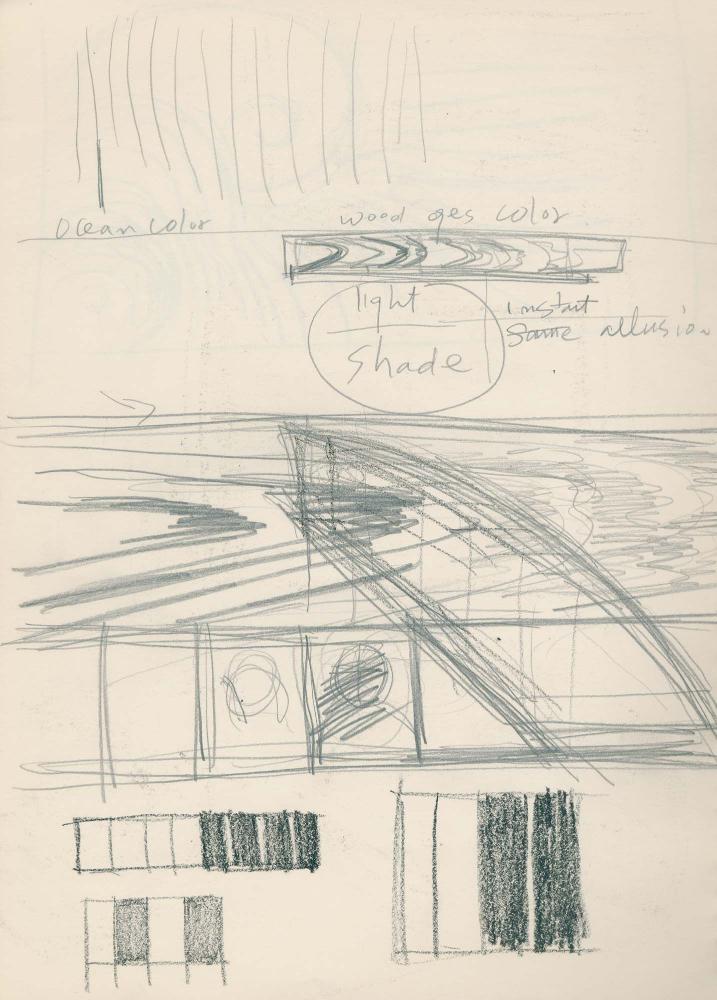 Ocean color
wood ges color
light
shade
instant
same allusion